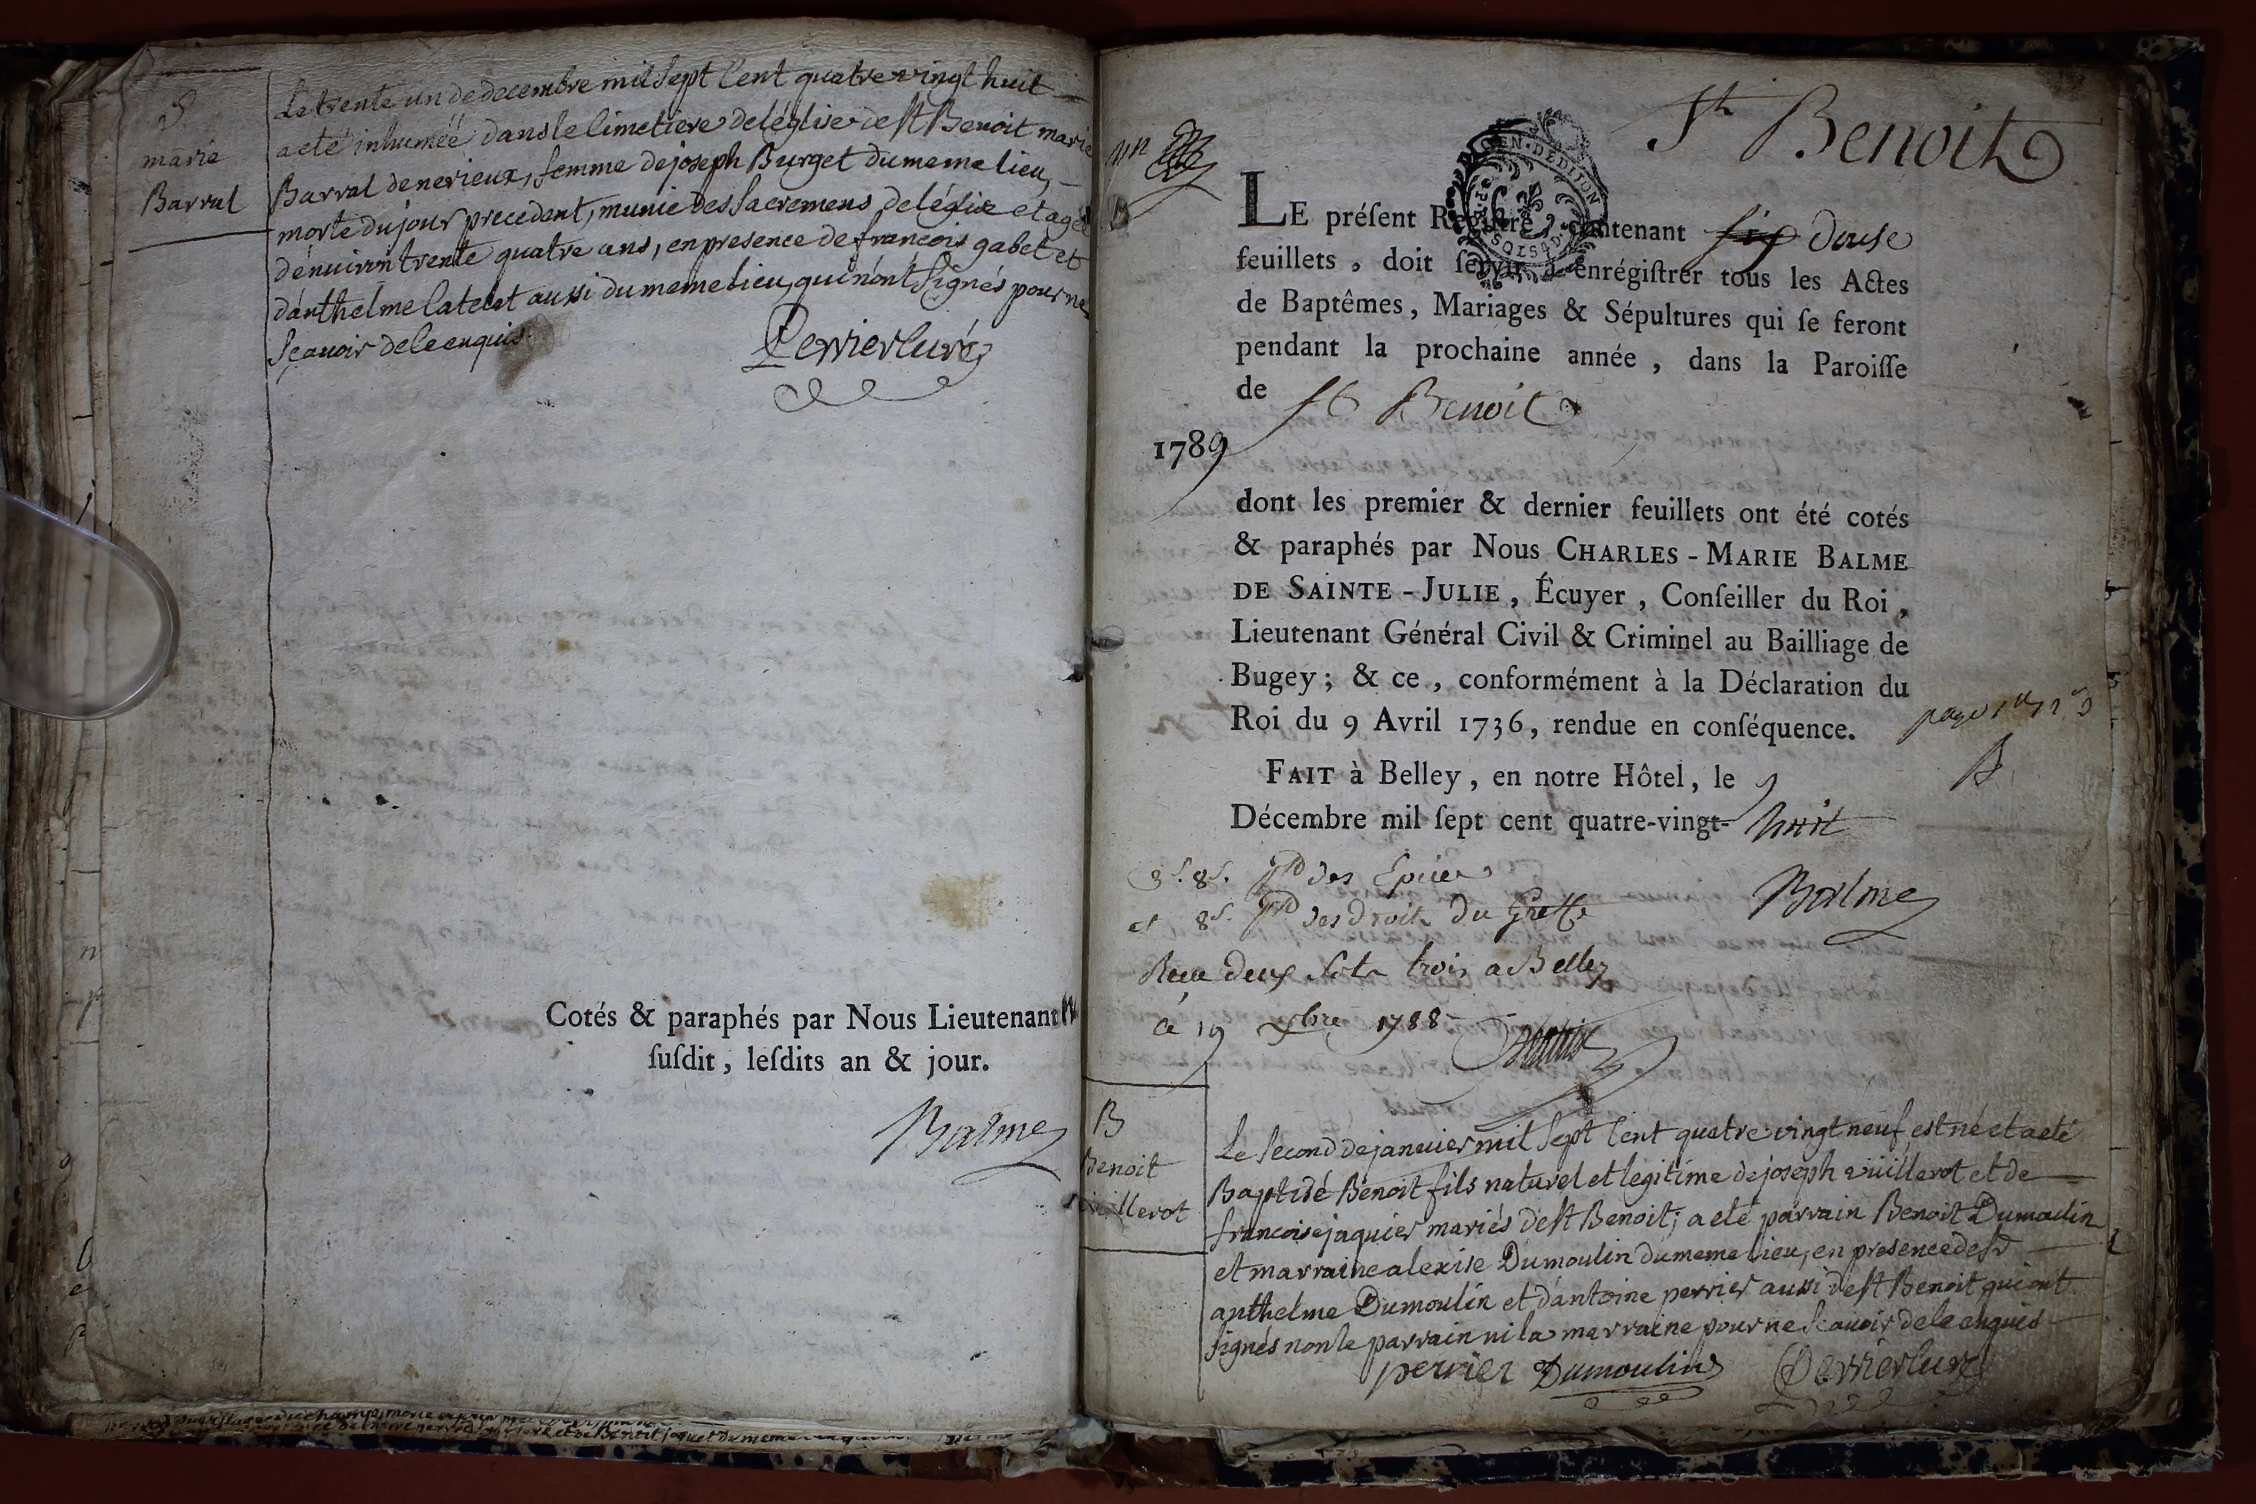 S
marie
Barral
Le trente un de decembre mil sept Cent quatre vingt huit
a eté inhumée dans le Cimetiere de léglise de st Benoit marie
Barral de nerieux, femme de joseph Burget du meme lieu,
morte du jour precedent, munie des Sacremens de léglise et agée
dénuiron trente quatre ans, en presence de francois gabet et
dánthelme Catelet aussi du meme lieu, qui nónt signés pour ne
Sçauoir de ce enquis
Perrier Curé
Cotés & paraphés par Nous Lieutenant
ſuſdit, leſdits an & jour.
Balme
St Benoit
GEN. DE DIJON
LE préſent Regiſtre, contenant six douse
feuillets, doit ſervir à enrégiſtrer tous les Actes
de Baptêmes, Mariages & Sépultures qui ſe feront
pendant la prochaine année, dans la Paroiſſe
de st Benoit
1789
dont les premier & dernier feuillets ont été cotés
& paraphés par Nous CHARLES-MARIE BALME
DE SAINTE-JULIE, Écuyer, Conſeiller du Roi,
Lieutenant Général Civil & Criminel au Bailliage de
Bugey; & ce, conformément à la Déclaration du
Roi du 9 Avril 1736, rendue en conſéquence.
FAIT à Belley, en notre Hôtel, le 9
Décembre mil ſept cent quatre-vingt-huit
des Epices
et 8s. des droits du Greffe
Balme
Receu deux sols trois a Belley
Ce 19 Xbre 1788
B
Benoit
vüillerot
Le Second de januier mil Sept Cent quatre vingt neuf est né et a eté
Baptisé Benoit fils naturel et legitime de joseph vüillerot et de
francoise jaquier mariés de st Benoit; a eté parrain Benoit Dumoulin
et marraine alexise Dumoulin du meme lieu, en presence de sr
anthelme Dumoulin et dántoine perrier aussi de st Benoit qui ont
signés non le parrain ni la marraine pour ne Scauoir de ce enquis
perrier Dumoulin Perrier Curé